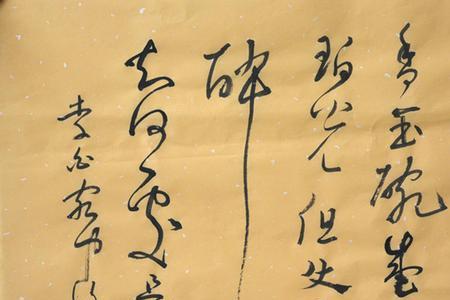 香玉碗盛
珀光但使
醉
知何處是
李白客中行